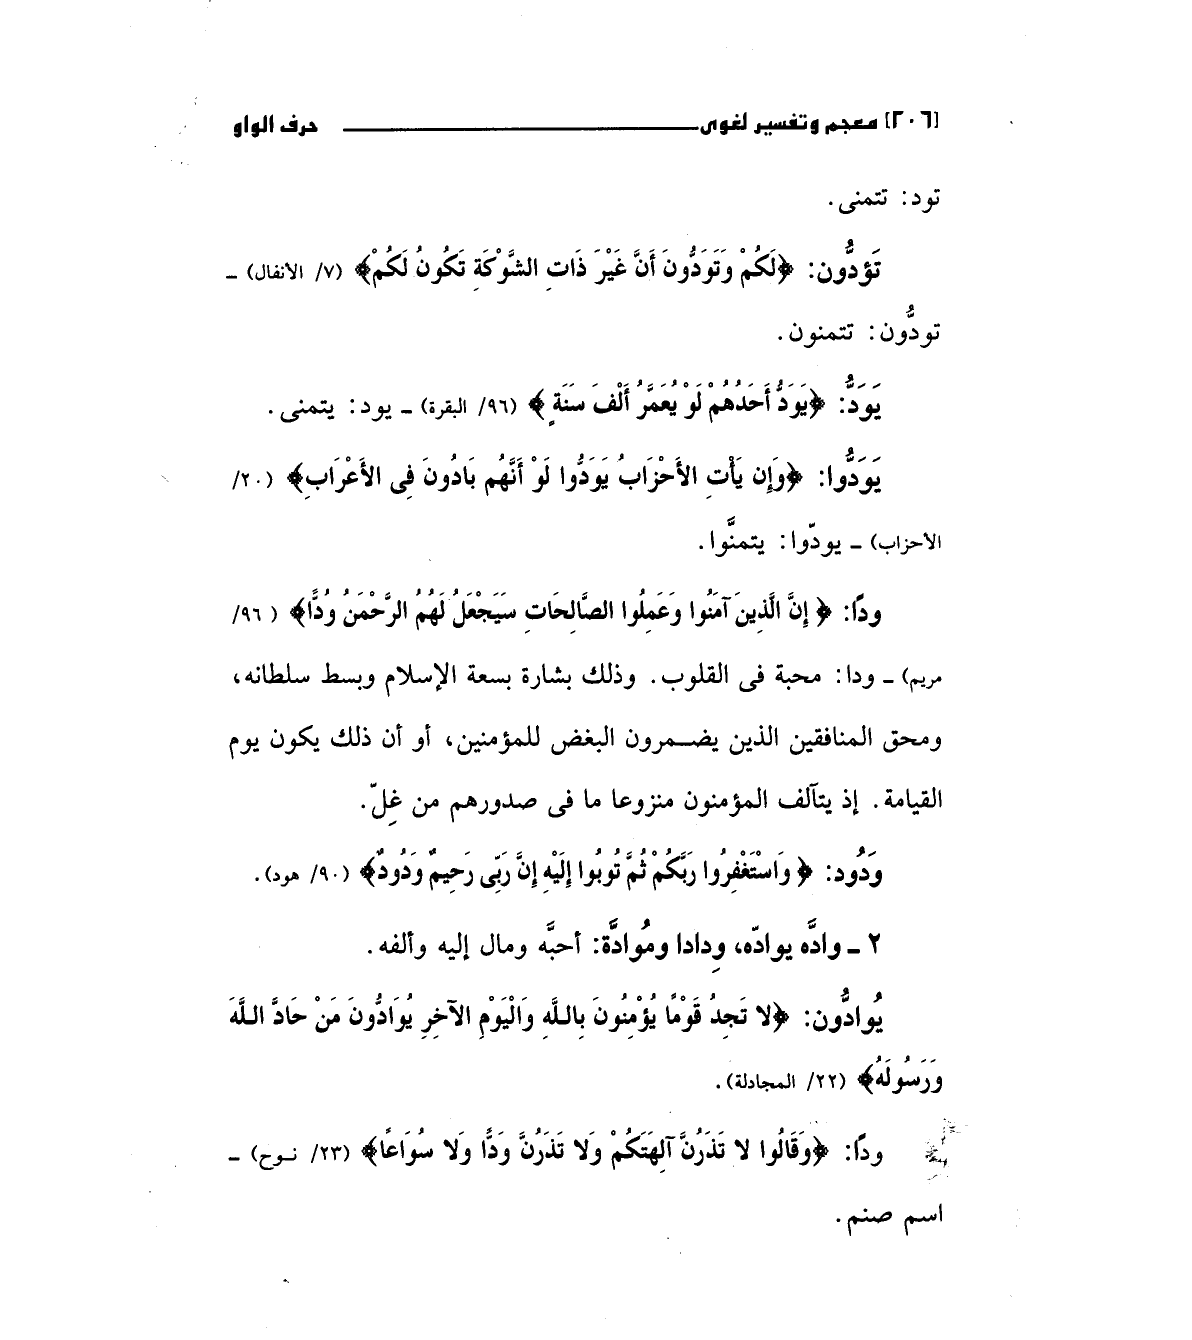 [٢٠٦] معجم وتفسير لغوى ـــــــــ حرف الواو
تود: تتمنى.
تَوَدُّون: ﴿لَكُمْ وَتَوَدُّونَ أَنَّ غَيْرَ ذَاتِ الشَّوْكَةِ تَكُونُ لَكُمْ﴾ (٧/ الأنفال) ـ
تودُّون: تتمنون.
يَوَدُّ: ﴿يَوَدُّ أَحَدُهُمْ لَوْ يُعَمَّرُ أَلْفَ سَنَةٍ﴾ (٩٦/ البقرة) ـ يود: يتمنى.
يَوَدُّوا: ﴿وَإِن يَأْتِ الأَحْزَابُ يَوَدُّوا لَوْ أَنَّهُم بَادُونَ فِى الأَعْرَابِ﴾ (٢٠/
الأحزاب) ـ يودّوا: يتمنَّوا.
ودًا: ﴿ إِنَّ الَّذِينَ آمَنُوا وَعَمِلُوا الصَّالِحَاتِ سَيَجْعَلُ لَهُمُ الرَّحْمَنُ وُدًّا﴾ (٩٦/
مريم) ـ ودا: محبة فى القلوب. وذلك بشارة بسعة الإسلام وبسط سلطانه،
ومحق المنافقين الذين يضـمرون البغض للمؤمنين، أو أن ذلك يكون يوم
القيامة. إذ يتآلف المؤمنون منزوعا ما فى صدورهم من غِلّ.
وَدُود: ﴿ وَاسْتَغْفِرُوا رَبَّكُمْ ثُمَّ تُوبُوا إِلَيْهِ إِنَّ رَبِّى رَحِيمٌ وَدُودٌ﴾ (٩٠/ هود).
٢ ـ وادَّه يوادّه، وِدادا ومُوادَّة: أحبَّه ومال إليه وألفه.
يُوادُّون: ﴿لا تَجِدُ قَوْمًا يُؤْمِنُونَ بِاللَّهِ وَالْيَوْمِ الآخِرِ يُوَادُّونَ مَنْ حَادَّ اللَّهَ
وَرَسُولَهُ﴾ (٢٢/ المجادلة).
ودًا: ﴿وَقَالُوا لا تَذَرُنَّ آلِهَتَكُمْ وَلا تَذَرُنَّ وَدًّا وَلا سُوَاعًا﴾ (٢٣/ نـوح) ـ
اسم صنم.